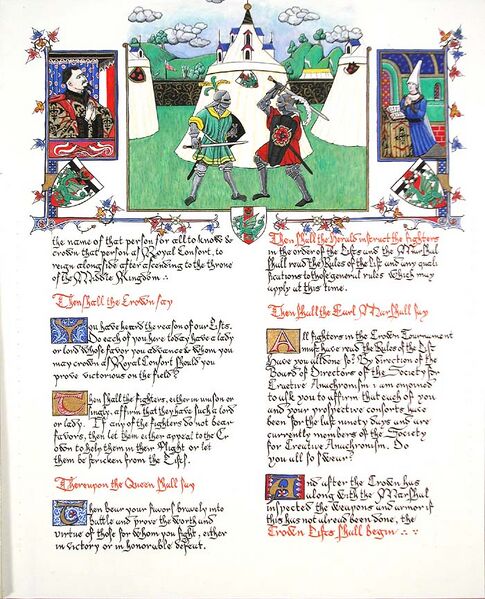 the name of that person for all to know &
crown that person as Royal Consort, to
reign alongside after ascending to the throne
of the Middle Kingdom
Then shall the Crown say
You have heard the reason of our Lists.
Do each of you here today have a lady
or lord whose favor you advance & whom you
may crown as Royal Consort should you
prove victorious on the field?
Then shall the fighters, either in unison or
singly, affirm that they have such a lord
or lady. If any of the fighters do not bear
favors, then let them either appeal to the Cr
own to help them in their plight or let
them be stricken from the Lists.
Thereupon the Queen shall say
Then bear your favors bravely into
battle and prove the worth and
virtue of those for whom you fight, either
in victory or in honorable defeat.
Then shall the Herald instruct the fighters
in the order of the Lists and the Marshal
shall read the Rules of the List and any quali
fications to those general rules which may
apply at this time.
Then shall the Earl Marshall say
All fighters in the Crown Tournament
must have read the Rules of the List
Have you all done so? By direction of the
Board of Directors of the Society for
Creative Anachronism i am enjoined
to ask you to affirm that each of you
and your prospective consorts have
been for the last ninety days and are
currently members of the Society
for Creative Anachronism. Do
you all so swear?
And after the Crown has
along with the Marshal
inspected the weapons and armor if
this has not already been done, the
Crown Lists shall begin